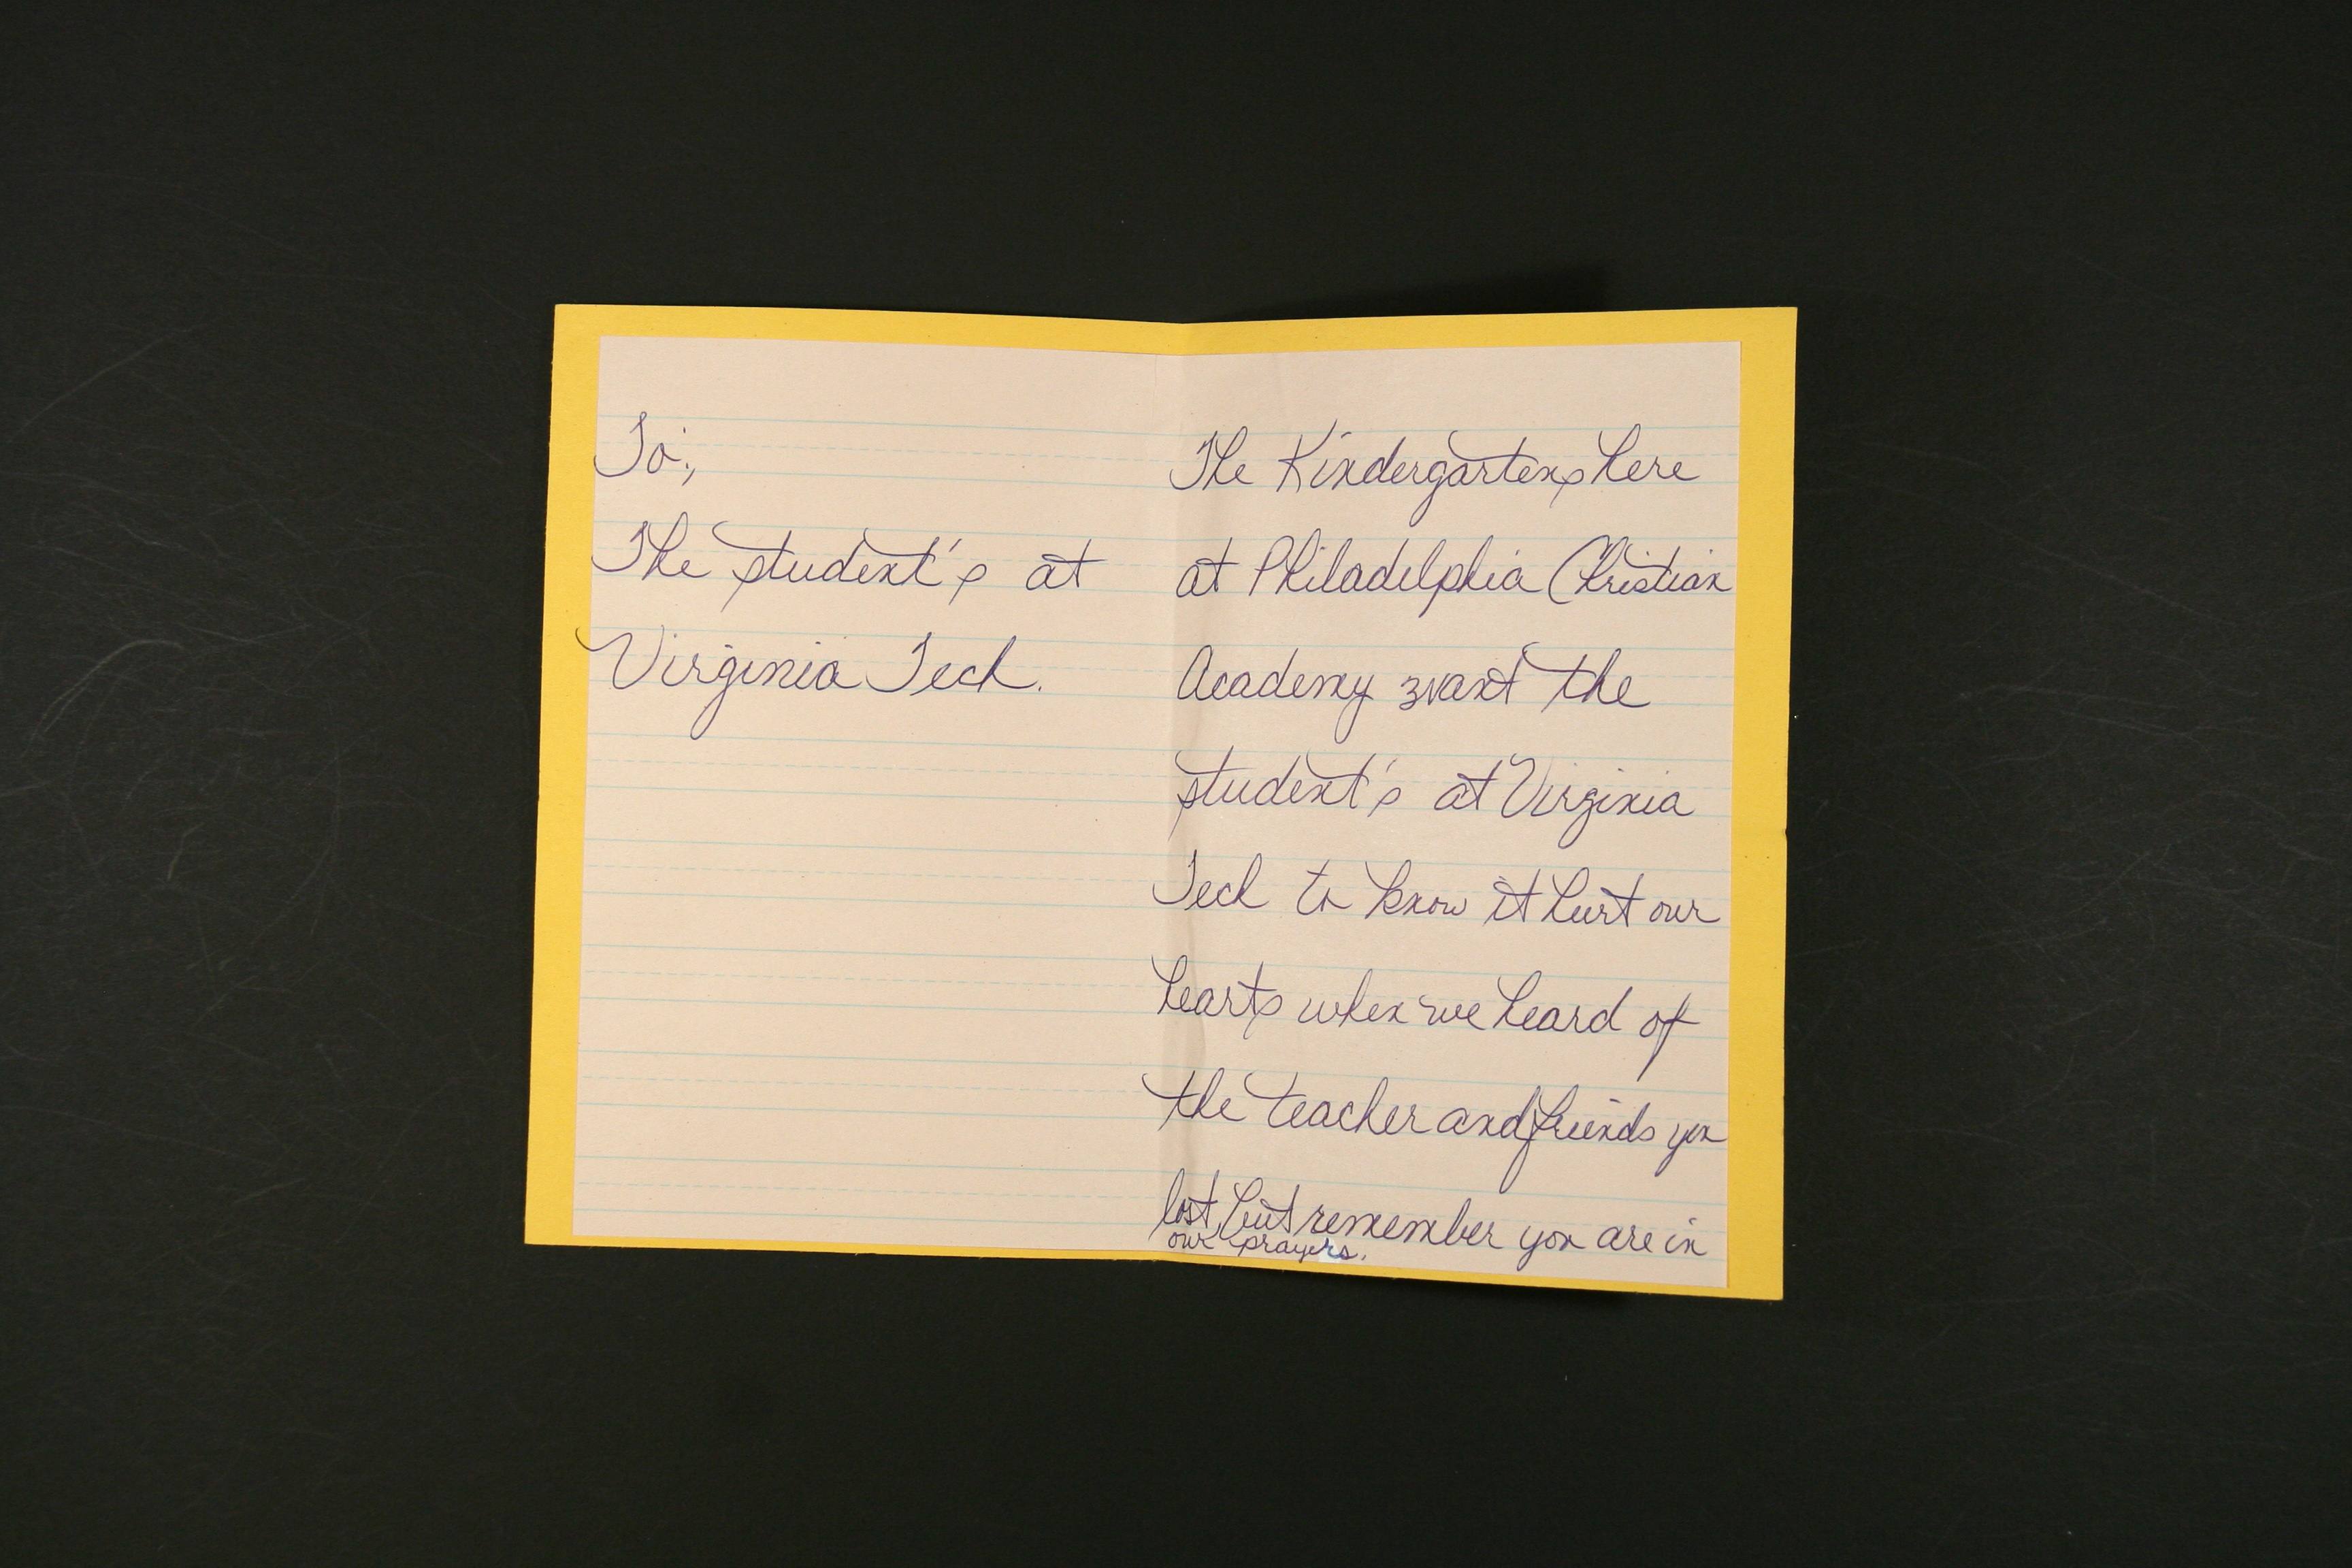 To:,
The student's at
Virginia Tech.
The Kindergartens here
at Philadelphia Christian
Academy want the
student's at Virginia
Tech to know it hurt our
hearts when we heard of
the teacher and friends you
lost, but remember you are in
our prayers.